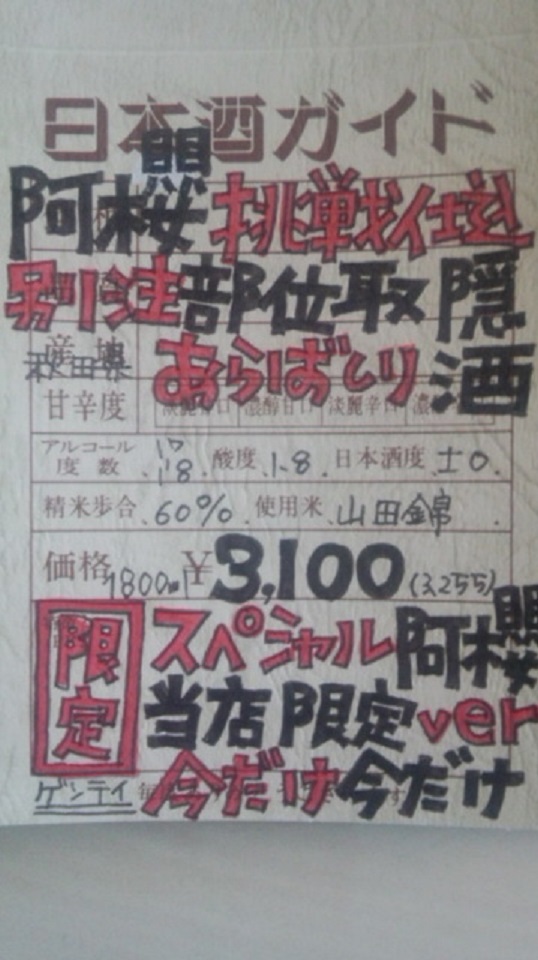 日本酒ガイド
阿櫻 挑戦仕込
別注 部位取 隠
産地 秋田県 あらばしり 酒
甘辛度 淡麗甘口 濃醇甘口 淡麗辛口
アルコール度数 17 18 酸度 1.8 日本酒度 ±0
精米歩合 60% 使用米 山田錦
価格 1800ml ¥3,100 (3,255)
限定 スペシャル阿櫻
当店限定ver
ゲンテイ 今だけ今だけ